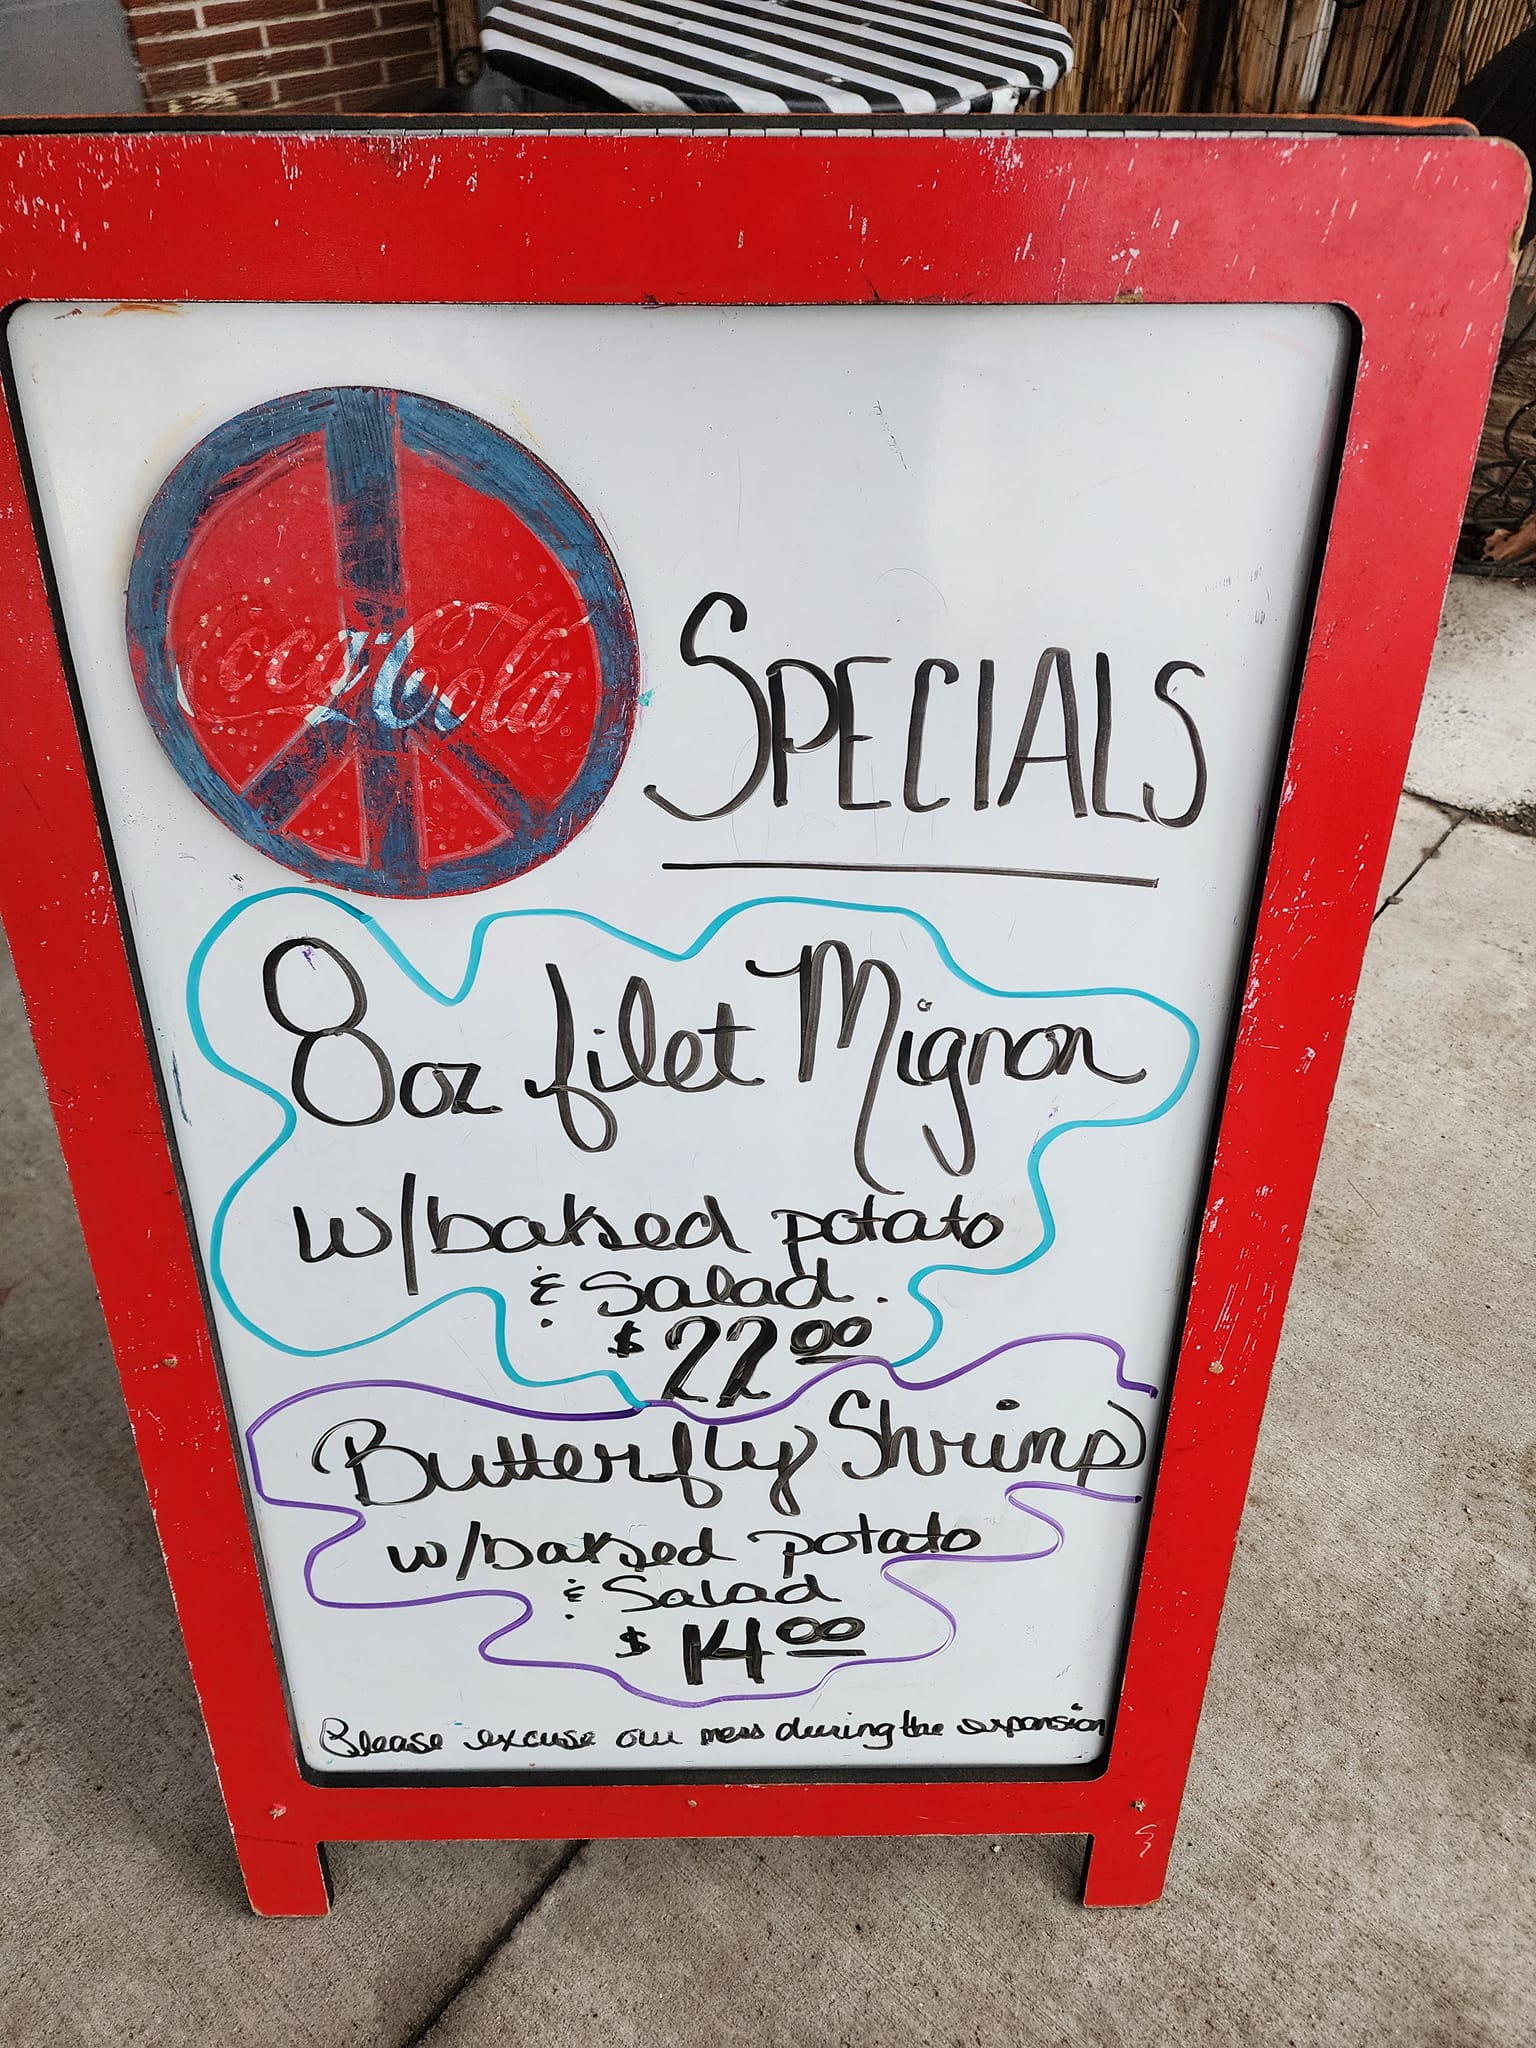 Coca-Cola
SPECIALS
8oz filet Mignon
w/baked potato
& Salad.
$22.00
Butterfly Shrimp
w/baked potato
& Salad
$14.00
Please excuse our mess during the expansion